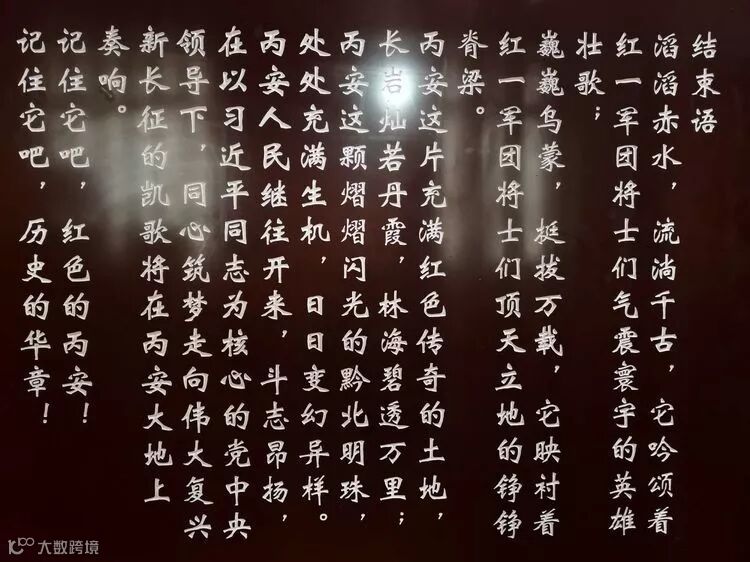 结束语
滔滔赤水，流淌千古，它吟颂着
红一军团将士们气震寰宇的英雄
壮歌；
巍巍乌蒙，挺拔万载，它映衬着
红一军团将士们顶天立地的铮铮
脊梁。
丙安这片充满红色传奇的土地，
长岩灿若丹霞，林海碧透万里；
丙安这颗熠熠闪光的黔北明珠，
处处充满生机，日日变幻异样。
丙安人民继往开来，斗志昂扬，
在以习近平同志为核心的党中央
领导下，同心筑梦走向伟大复兴
新长征的凯歌将在丙安大地上
奏响。
记住它吧，红色的丙安！
记住它吧，历史的华章！
大数跨境